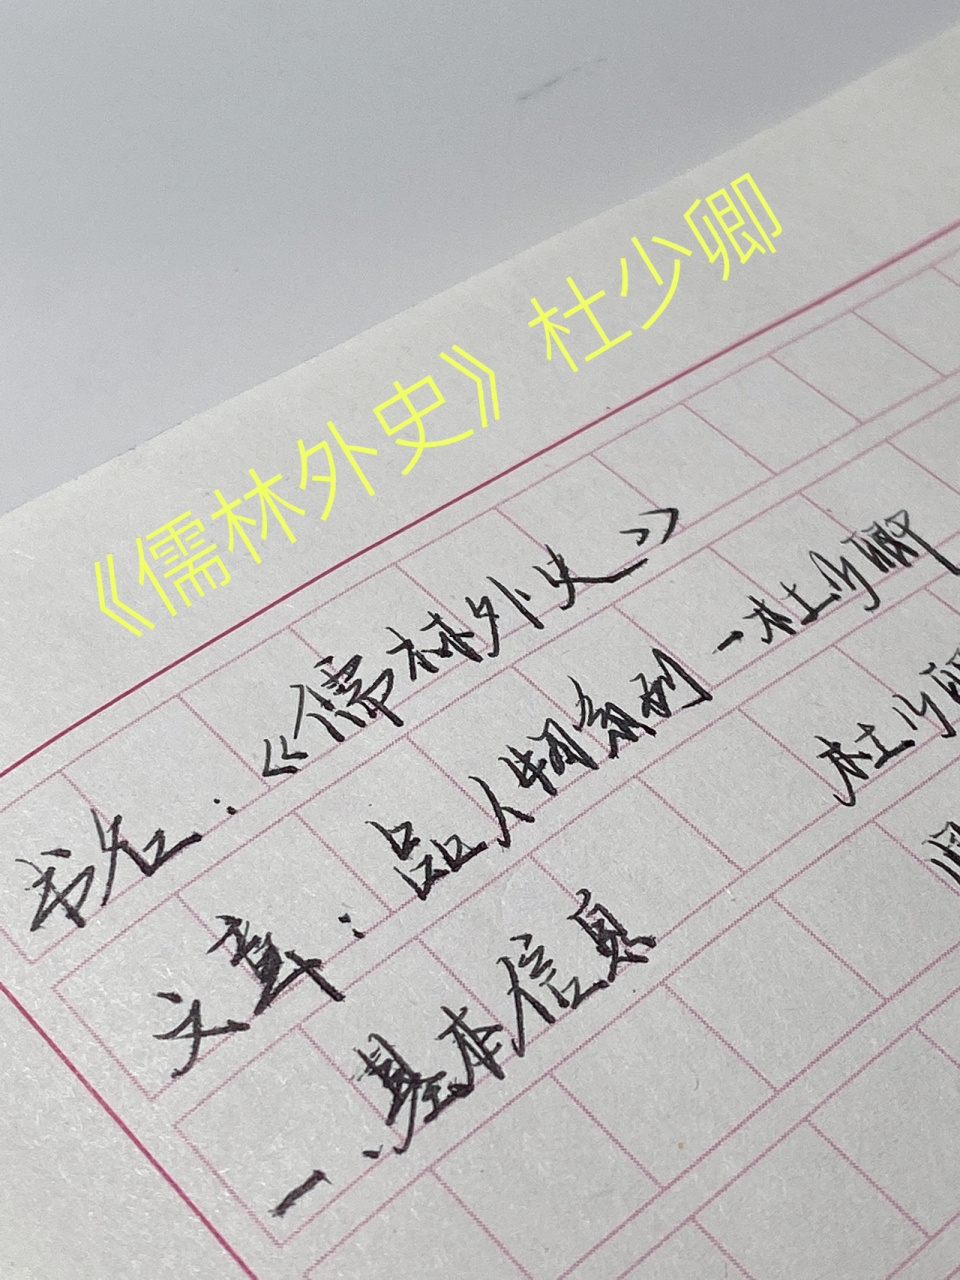 《儒林外史》杜少卿
书名:《儒林外史》
文章:品人物系列-杜少卿
杜少卿
一、基本信息